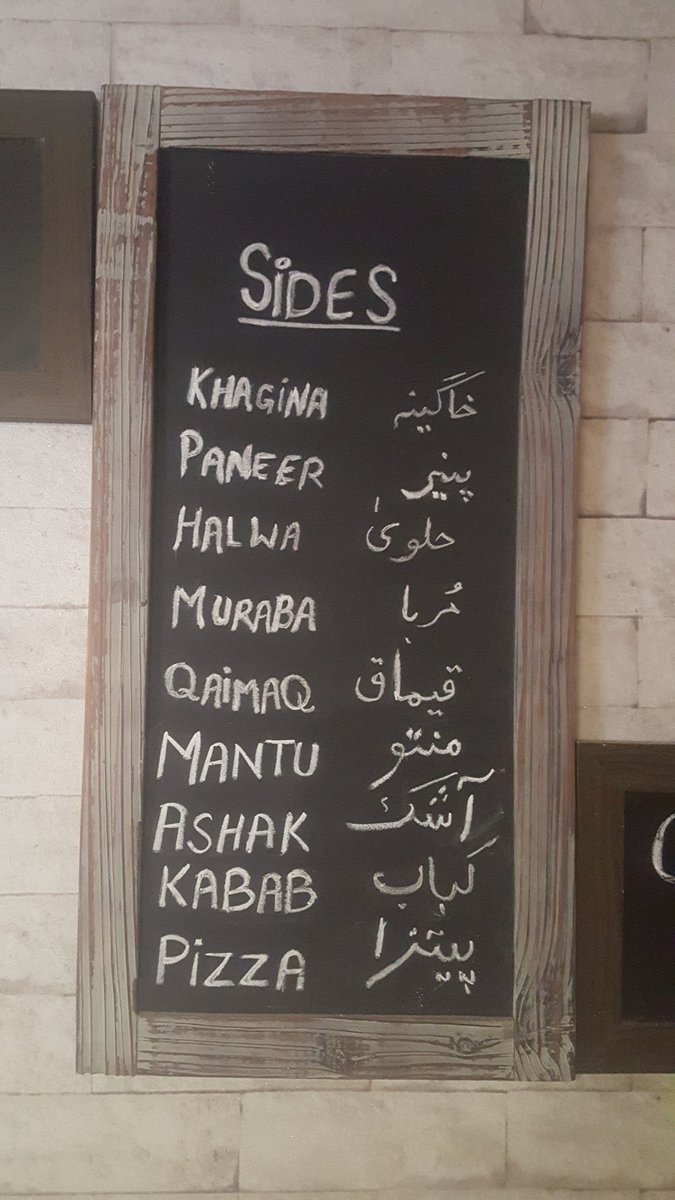 SiDES
KHAGiNA خاگینه
PANEER پنیر
HALWA حلویٰ
MURABA مُربا
QAiMAQ قیماق
MANTU منتو
ASHAK آشک
KABAB کباب
PiZZA پیتزا